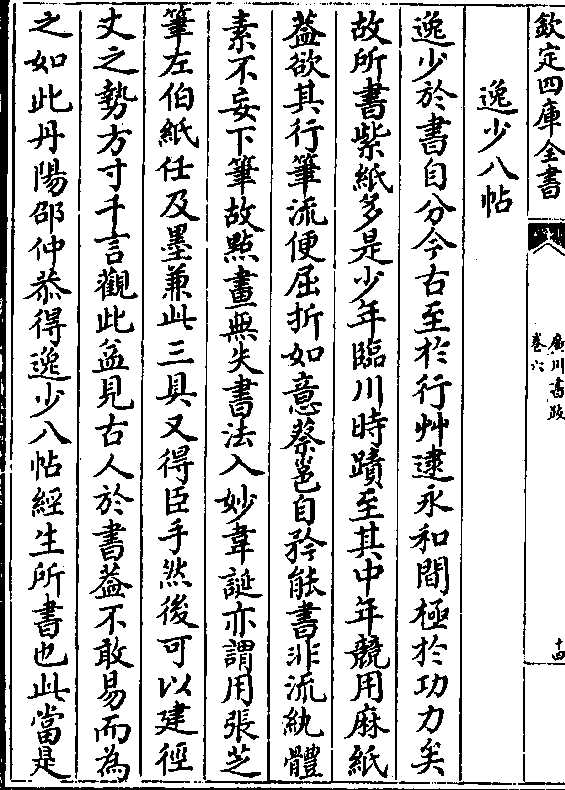 欽定四庫全書
廣川書跋
卷六
十四
逸少八帖
逸少於書自分今古至於行艸逮永和間極於功力矣
故所書紫紙多是少年臨川時蹟至其中年競用麻紙
葢欲其行筆流便屈折如意蔡邕自矜能書非流紈體
素不妄下筆故㸃畫無失書法入妙韋誕亦謂用張芝
筆左伯紙任及墨兼此三具又得臣手然後可以建徑
丈之勢方寸千言觀此益見古人於書葢不敢易而為
之如此丹陽邵仲恭得逸少八帖經生所書也此當是